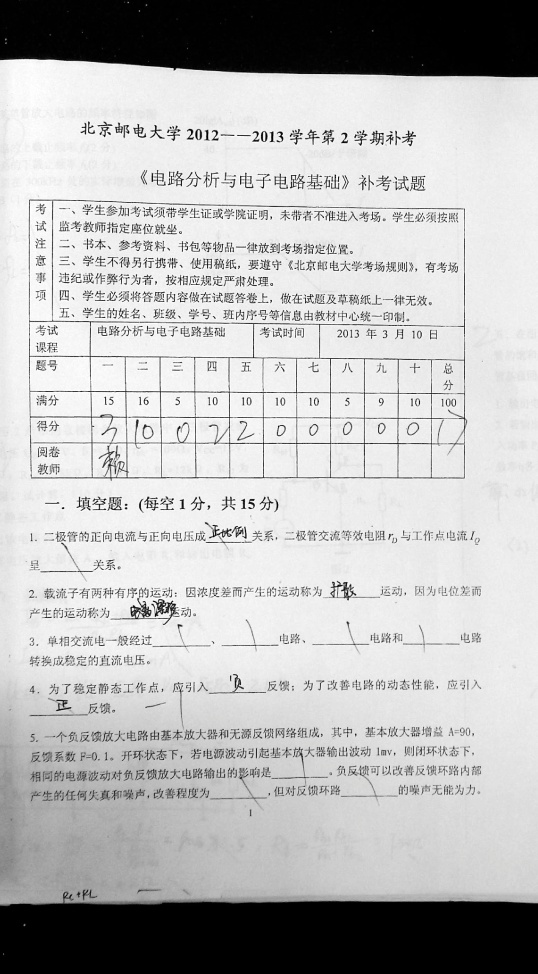 北京邮电大学 2012——2013 学年第 2 学期补考
《电路分析与电子电路基础》补考试题
考试注意事项
一、学生参加考试须带学生证或学院证明，未带者不准进入考场。学生必须按照
监考教师指定座位就坐。
二、书本、参考资料、书包等物品一律放到考场指定位置。
三、学生不得另行携带、使用稿纸，要遵守《北京邮电大学考场规则》，有考场
违纪或作弊行为者，按相应规定严肃处理。
四、学生必须将答题内容做在试题答卷上，做在试题及草稿纸上一律无效。
五、学生的姓名、班级、学号、班内序号等信息由教材中心统一印制。
考试课程 电路分析与电子电路基础 考试时间 2013 年 3 月 10 日
题号 一 二 三 四 五 六 七 八 九 十 总分
满分 15 16 5 10 10 10 10 5 9 10 100
得分 3 10 0 2 2 0 0 0 0 0 17
阅卷教师 赖
一. 填空题：(每空 1 分，共 15 分)
1. 二极管的正向电流与正向电压成 正比例 关系，二极管交流等效电阻 rD 与工作点电流 IQ
呈________关系。
2. 载流子有两种有序的运动：因浓度差而产生的运动称为 扩散 运动，因为电位差而
产生的运动称为 漂移 运动。
3. 单相交流电一般经过________、________电路、________电路和________电路
转换成稳定的直流电压。
4. 为了稳定静态工作点，应引入 负 反馈；为了改善电路的动态性能，应引入
正 反馈。
5. 一个负反馈放大电路由基本放大器和无源反馈网络组成，其中，基本放大器增益 A=90,
反馈系数 F=0.1。开环状态下，若电源波动引起基本放大器输出波动 1mv，则闭环状态下，
相同的电源波动对负反馈放大电路输出的影响是________。负反馈可以改善反馈环路内部
产生的任何失真和噪声，改善程度为________，但对反馈环路________的噪声无能为力。
1
Rc+RL